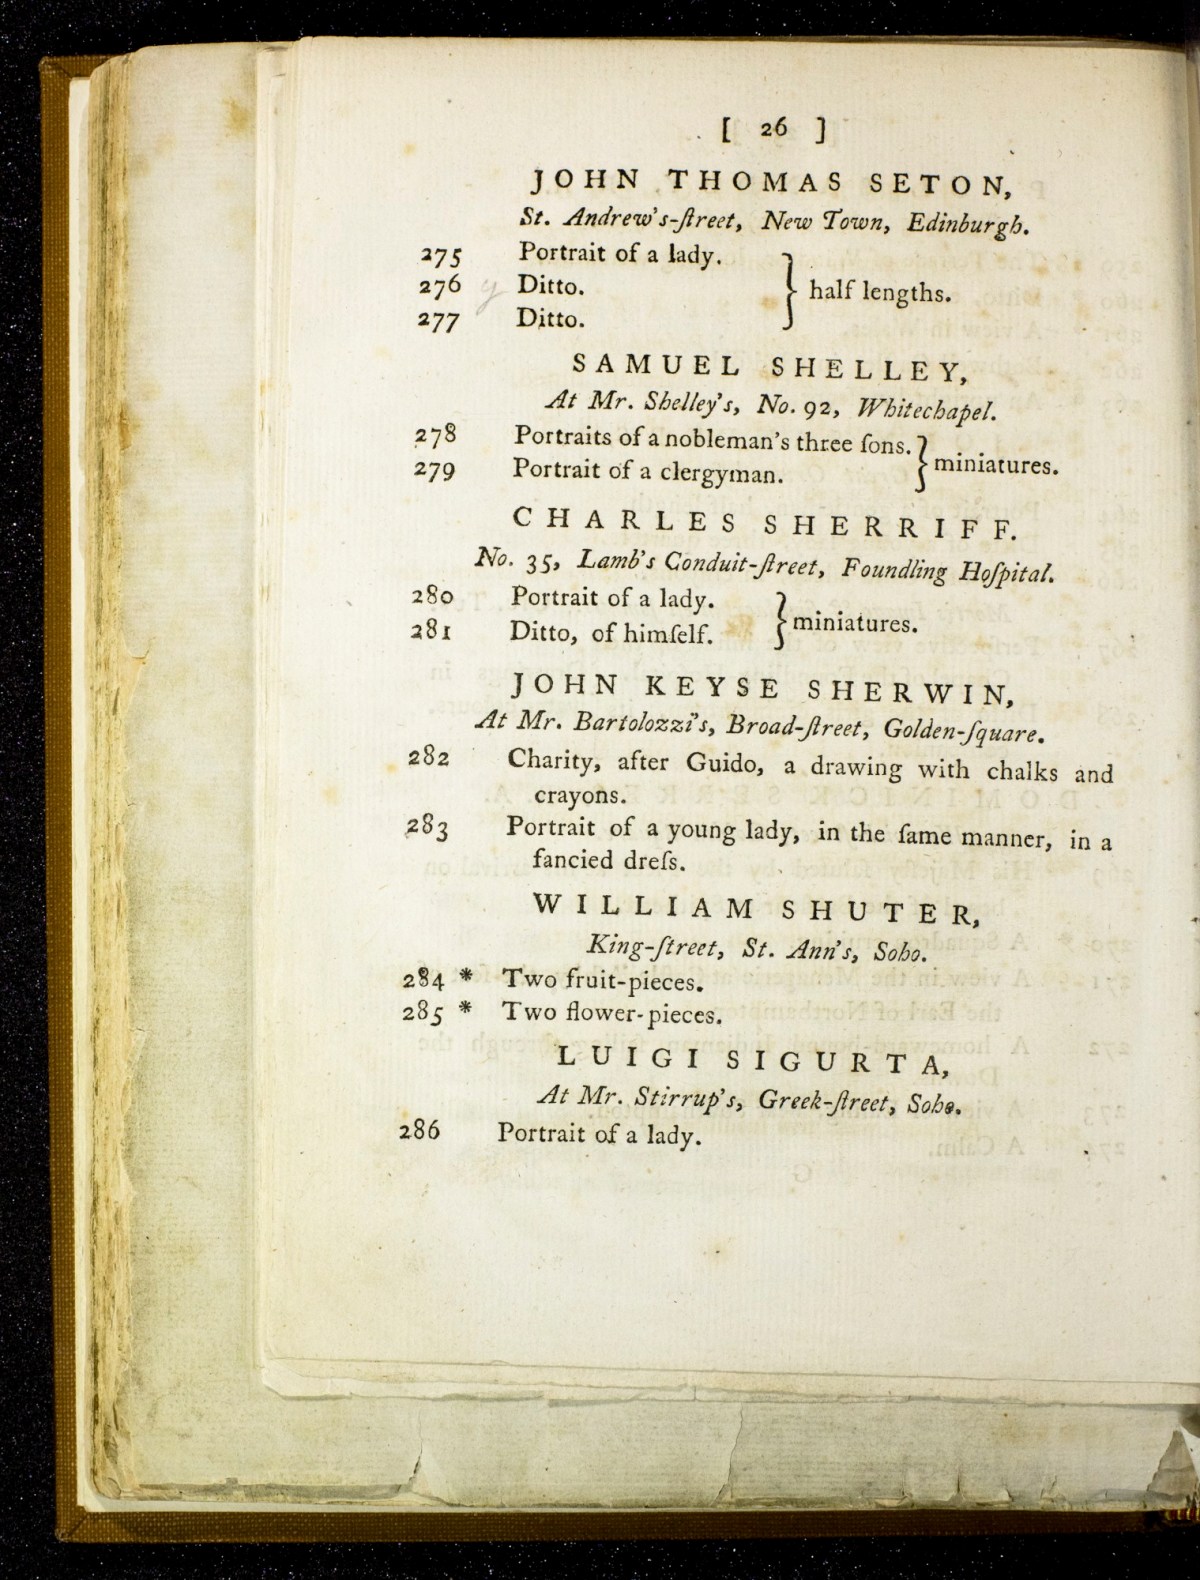 [ 26 ]
JOHN THOMAS SETON,
St. Andrew's-ſtreet, New Town, Edinburgh.
275 Portrait of a lady.
276 Ditto. } half lengths.
277 Ditto.
SAMUEL SHELLEY,
At Mr. Shelley's, No. 92, Whitechapel.
278 Portraits of a nobleman's three ſons. } miniatures.
279 Portrait of a clergyman.
CHARLES SHERRIFF.
No. 35, Lamb's Conduit-ſtreet, Foundling Hoſpital.
280 Portrait of a lady. } miniatures.
281 Ditto, of himſelf.
JOHN KEYSE SHERWIN,
At Mr. Bartolozzi's, Broad-ſtreet, Golden-ſquare.
282 Charity, after Guido, a drawing with chalks and
crayons.
283 Portrait of a young lady, in the ſame manner, in a
fancied dreſs.
WILLIAM SHUTER,
King-ſtreet, St. Ann's, Soho.
284 * Two fruit-pieces.
285 * Two flower-pieces.
LUIGI SIGURTA,
At Mr. Stirrup's, Greek-ſtreet, Soho.
286 Portrait of a lady.